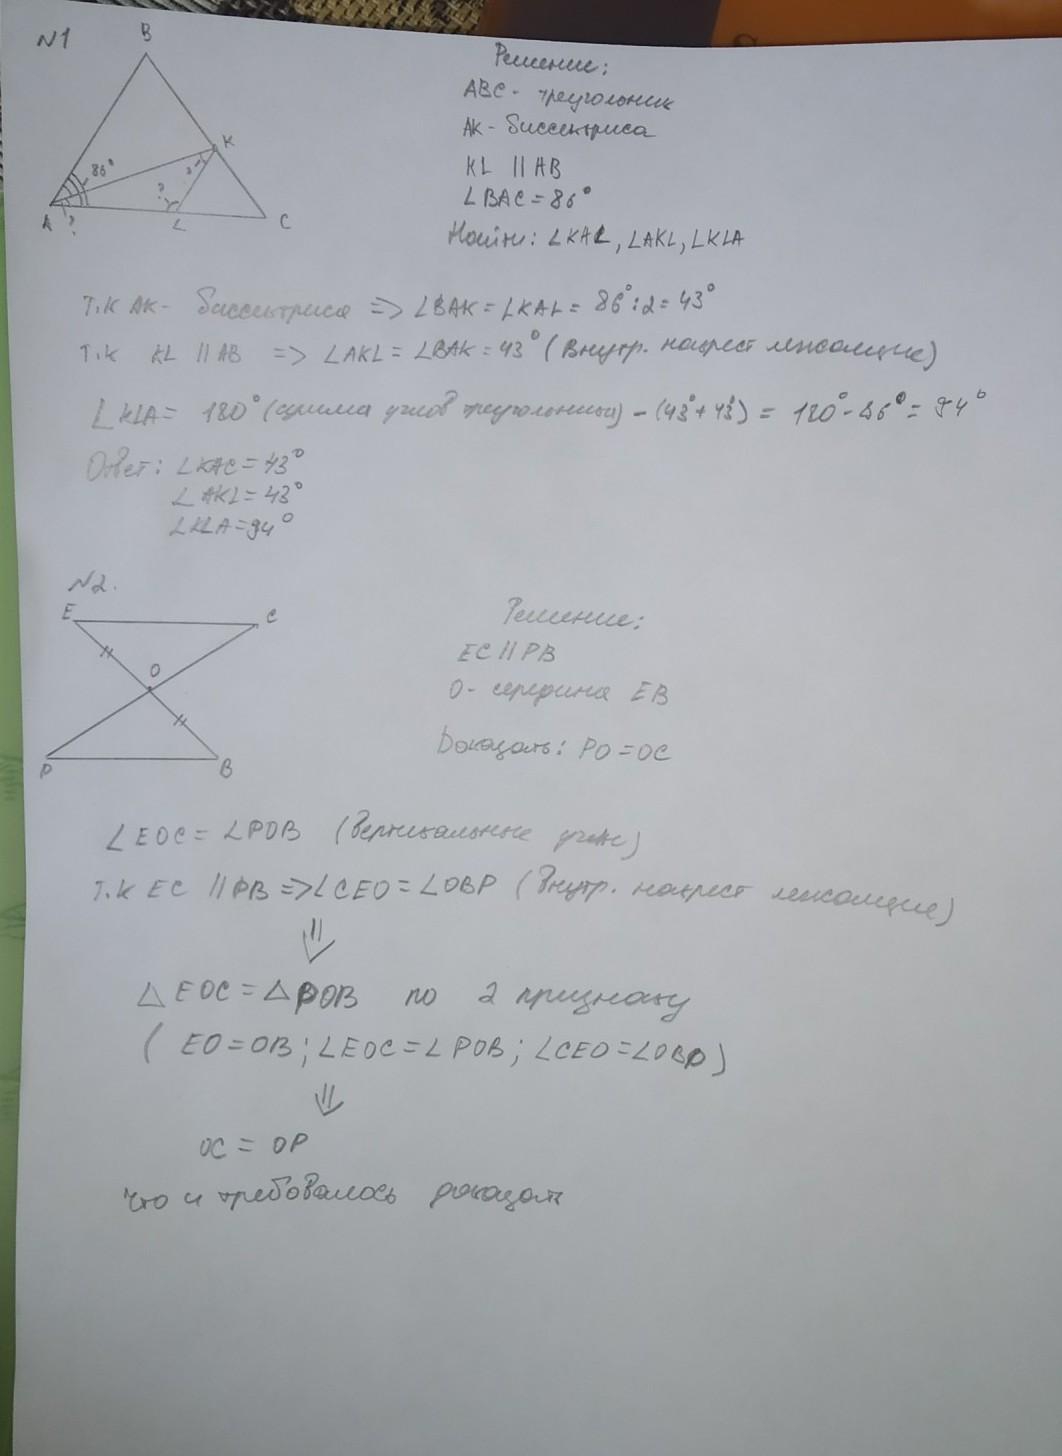 N1
B
K
86°
?
?
A
?
L
C
Решение:
ABC - треугольник
AK - биссектриса
KL || AB
∠BAC = 86°
Найти: ∠KAL, ∠AKL, ∠KLA
т.к AK - биссектриса => ∠BAK = ∠KAL = 86° : 2 = 43°
т.к KL || AB => ∠AKL = ∠BAK = 43° (внутр. накрест лежащие)
∠KLA = 180° (сумма углов треугольника) - (43° + 43°) = 180° - 86° = 94°
Ответ: ∠KAC = 43°
∠AKL = 43°
∠KLA = 94°
N2.
E
C
O
P
B
Решение:
EC || PB
O - середина EB
Доказать: PO = OC
∠EOC = ∠POB (Вертикальные углы)
т.к EC || PB => ∠CEO = ∠OBP (Внутр. накрест лежащие)
⇓
△EOC = △POB по 2 признаку
( EO = OB ; ∠EOC = ∠POB ; ∠CEO = ∠OBP )
⇓
OC = OP
что и требовалось доказать